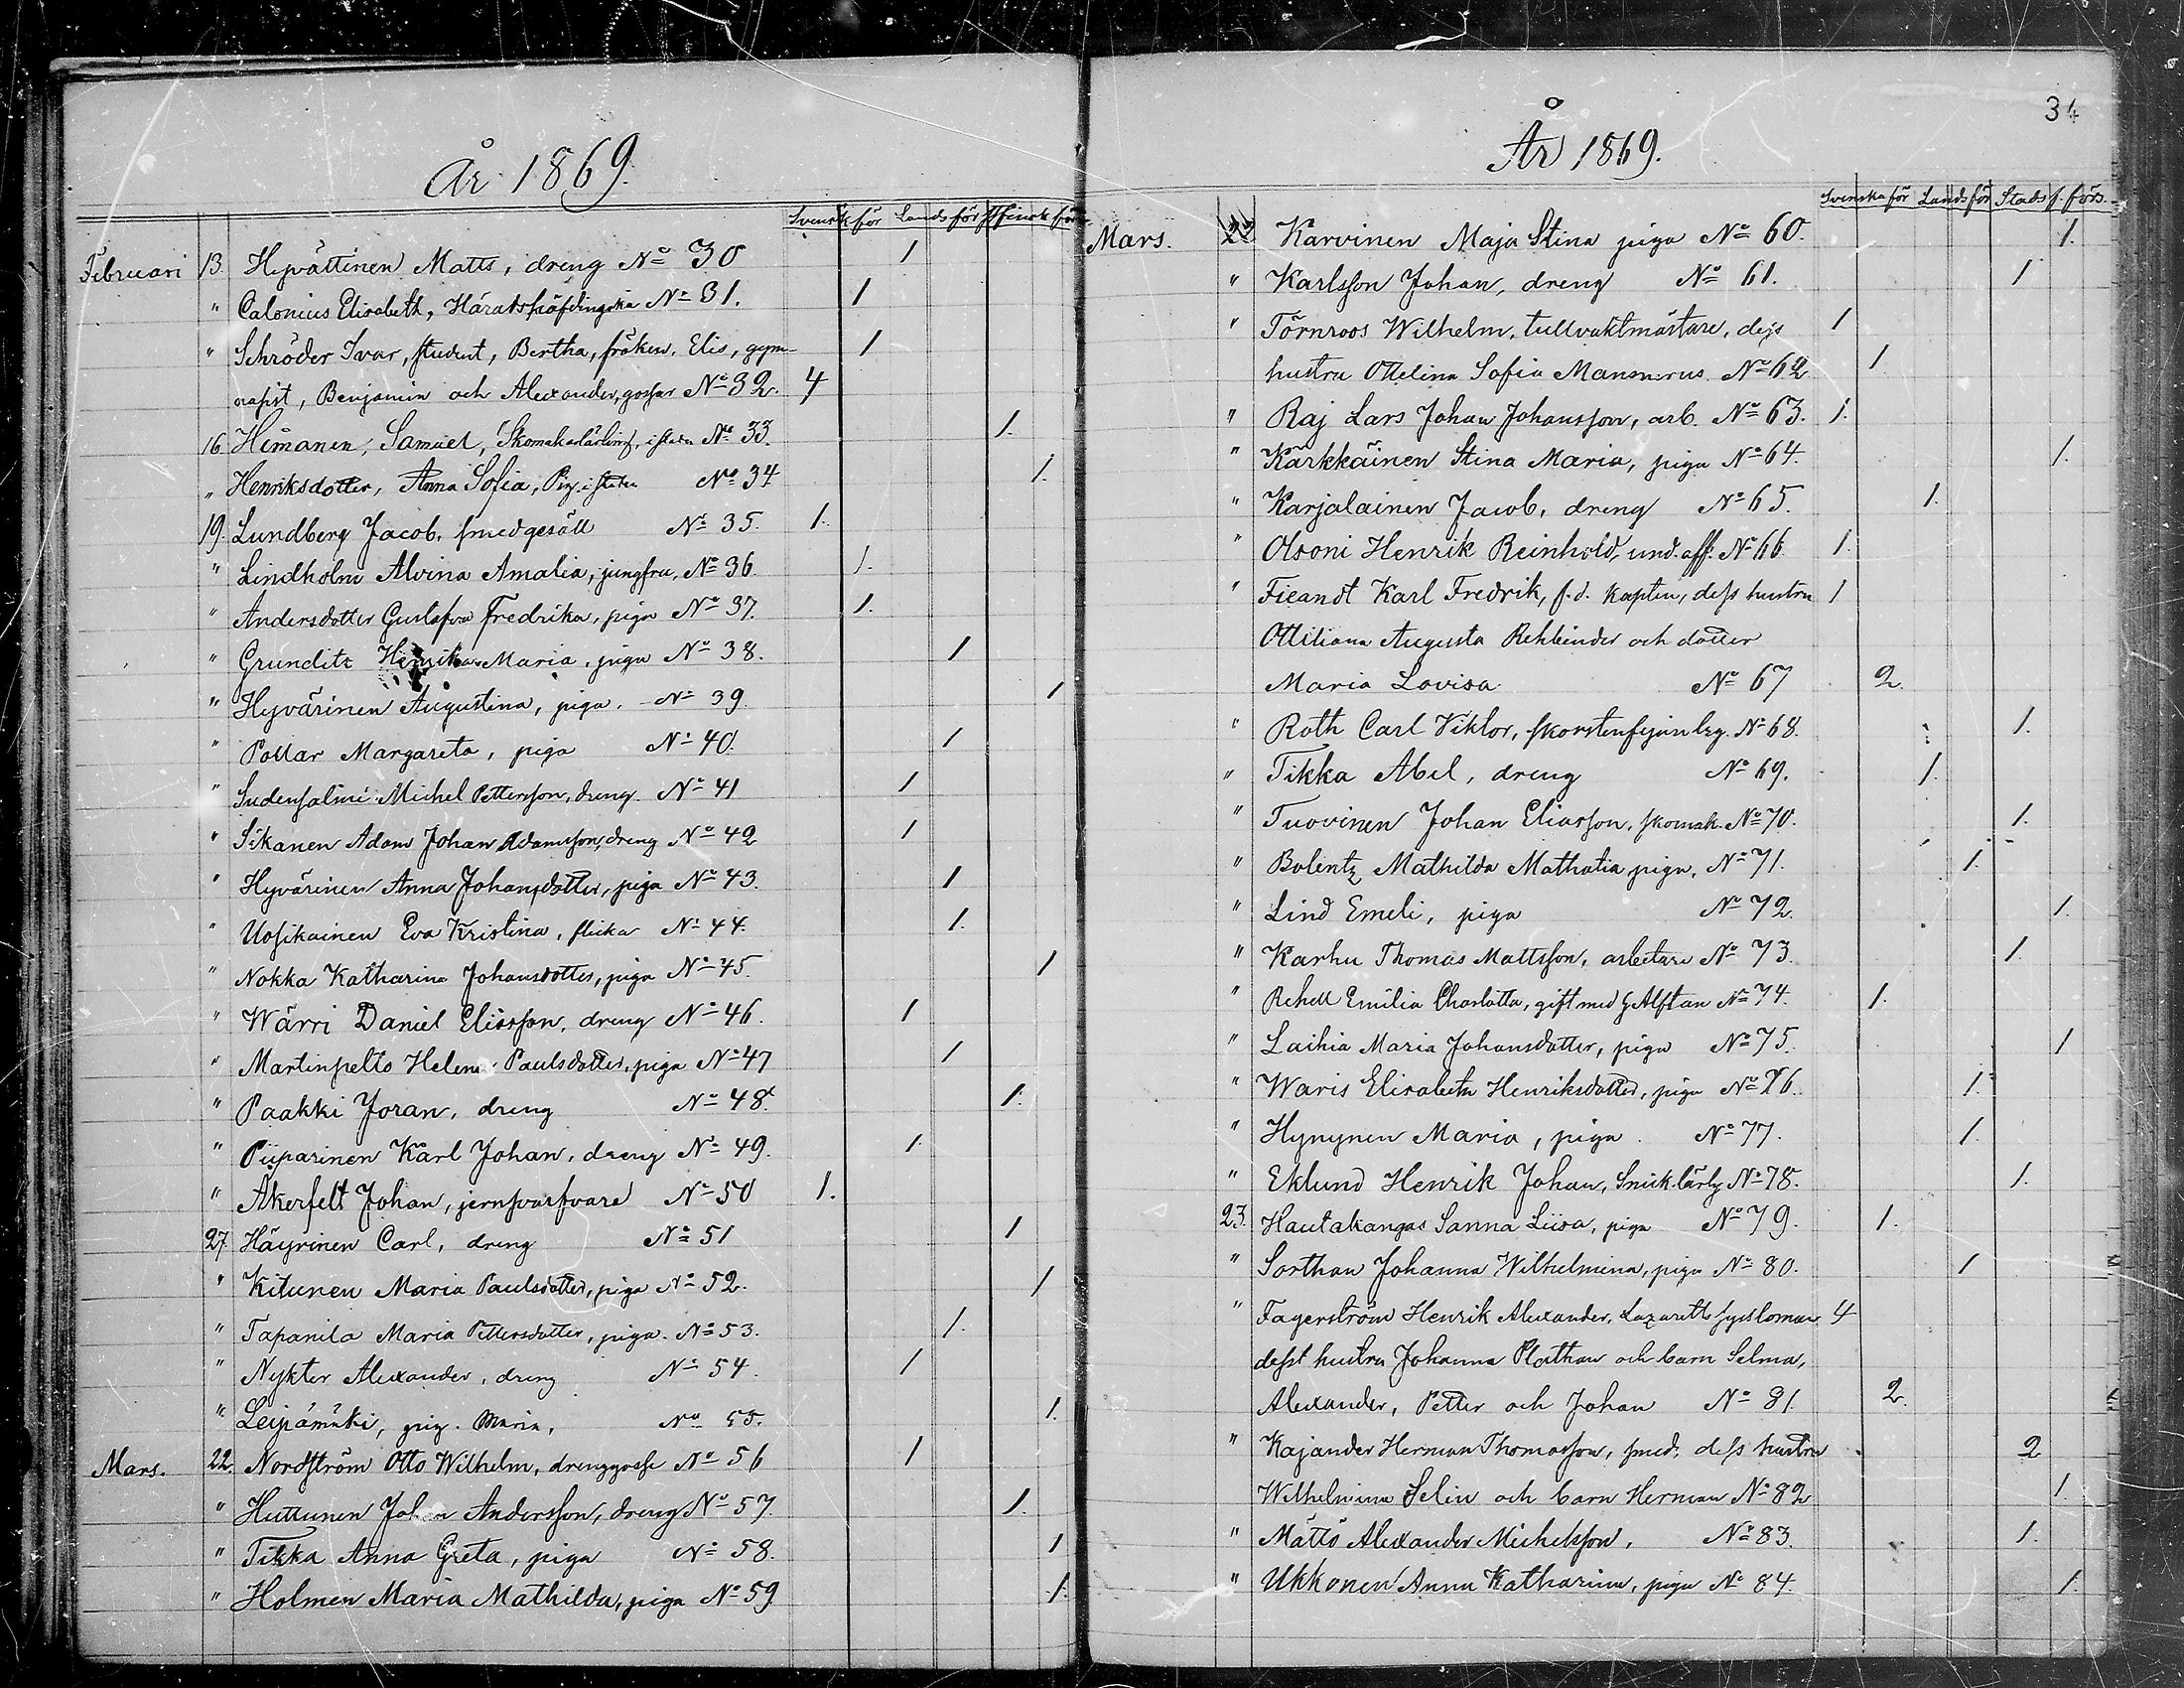 År 1869.
Svensk för Lands för St finsk förs.
Februari 13. Hyvättinen Matts, dreng No 30 1
" Calonius Elisabeth, Häradshöfdingska No 31. 1
" Schröder Ivar, student, Bertha, fröken, Elis, gym- 1
nasist, Benjamin och Alexander, gossar No 32. 4
16 Heimanen, Samuel, Skomakarlärling, i staden No 33. 1.
" Henriksdotter, Anna Sofia, Pig. i staden No 34 1.
19. Lundberg Jacob, smedgesäll No 35. 1.
" Lindholm Alvina Amalia, jungfru, No 36 1.
" Andersdotter Gustafva Fredrika, piga No 37. 1.
" Grundite Henrika Maria, piga No 38. 1
" Hyvärinen Augustina, piga. No 39. 1
" Pollar Margareta, piga No 40. 1
" Sudensalmi Michel Pettersson, dreng. No 41 1
" Sikanen Adam Johan Adamsson, dreng No 42 1
" Hyvärinen Anna Johansdotter, piga No 43. 1
" Uosikainen Eva Kristina, flicka No 44. 1.
" Nokka Katharina Johansdotter, piga No 45. 1
" Wärri Daniel Eliasson, dreng No 46. 1
" Martinpelto Helena Paulsdotter, piga No 47 1
" Paakki Joran, dreng No 48. 1.
" Piiparinen Karl Johan, dreng No 49. 1.
" Åkerfelt Johan, jernsvarfvare No 50 1.
27. Häyrinen Carl, dreng No 51 1
" Kitunen Maria Paulsdotter, piga No 52. 1
" Tapanila Maria Pettersdotter, piga. No 53. 1.
" Nykter Alexander, dreng No 54. 1
" Leipämäki, pig. Maria, No 55. 1.
Mars. 22. Nordström Otto Wilhelm, drenggosse No 56 1
" Huttunen Johan Andersson, dreng No 57. 1.
" Tikka Anna Greta, piga No 58. 1
" Holmen Maria Mathilda, piga No 59 1.
34
År 1869.
Svenska för Lands för Stads f. förs.
Mars. 22 Karvinen Maja Stina piga No 60. 1.
" Karlsson Johan, dreng No 61. 1
" Törnroos Wilhelm, tullvaktmästare, dess 1
hustru Ottelina Sofia No 62 1
" Raj Lars Johan Johansson, arb. No 63. 1.
" Kärkkäinen Stina Maria, piga No 64. 1.
" Karjalainen Jacob, dreng No 65. 1.
" Olsoni Henrik Reinhold, und. off. No 66 1.
" Fieandt Karl Fredrik, f.d. kapten, dess hustru 1
Ottiliana Augusta Rehbinder och dotter
Maria Lovisa No 67 2.
" Roth Carl Viktor, skorstenfejarelrg. No 68. 1.
" Tikka Abel, dreng No 69. 1.
" Tuovinen Johan Eliasson, skomak. No 70. 1.
" Bolentz Mathilda Mathatia piga, No 71. 1.
" Lind Emeli, piga No 72. 1.
" Karhu Thomas Mattsson, arbetare No 73. 1.
" Rehell Emilia Charlotta, gift med G Alftan No 74. 1.
" Laihia Maria Johansdotter, piga No 75. 1
" Waris Elisabeta Henriksdotter, piga No 76. 1.
" Hynynen Maria, piga. No 77. 1.
" Eklund Henrik Johan, Snick. lärlg No 78. 1.
23. Hautakangas Sanna Liisa, piga No 79. 1.
" Sorthan Johanna Wilhelmina, piga No 80. 1
" Fagerström Henrik Alexander, Lazaretts sysloman 4
dess hustru Johanna Plathan och barn Selma,
Alexander, Petter och Johan No 81. 2.
" Kajander Herman Thomasson, smed, dess hustru 2
Wilhelmina Selin och barn Herman No 82 1.
" Mättö Alexander Michelsson, No 83. 1.
" Ukkonen Anna Katharina, piga No 84. 1.